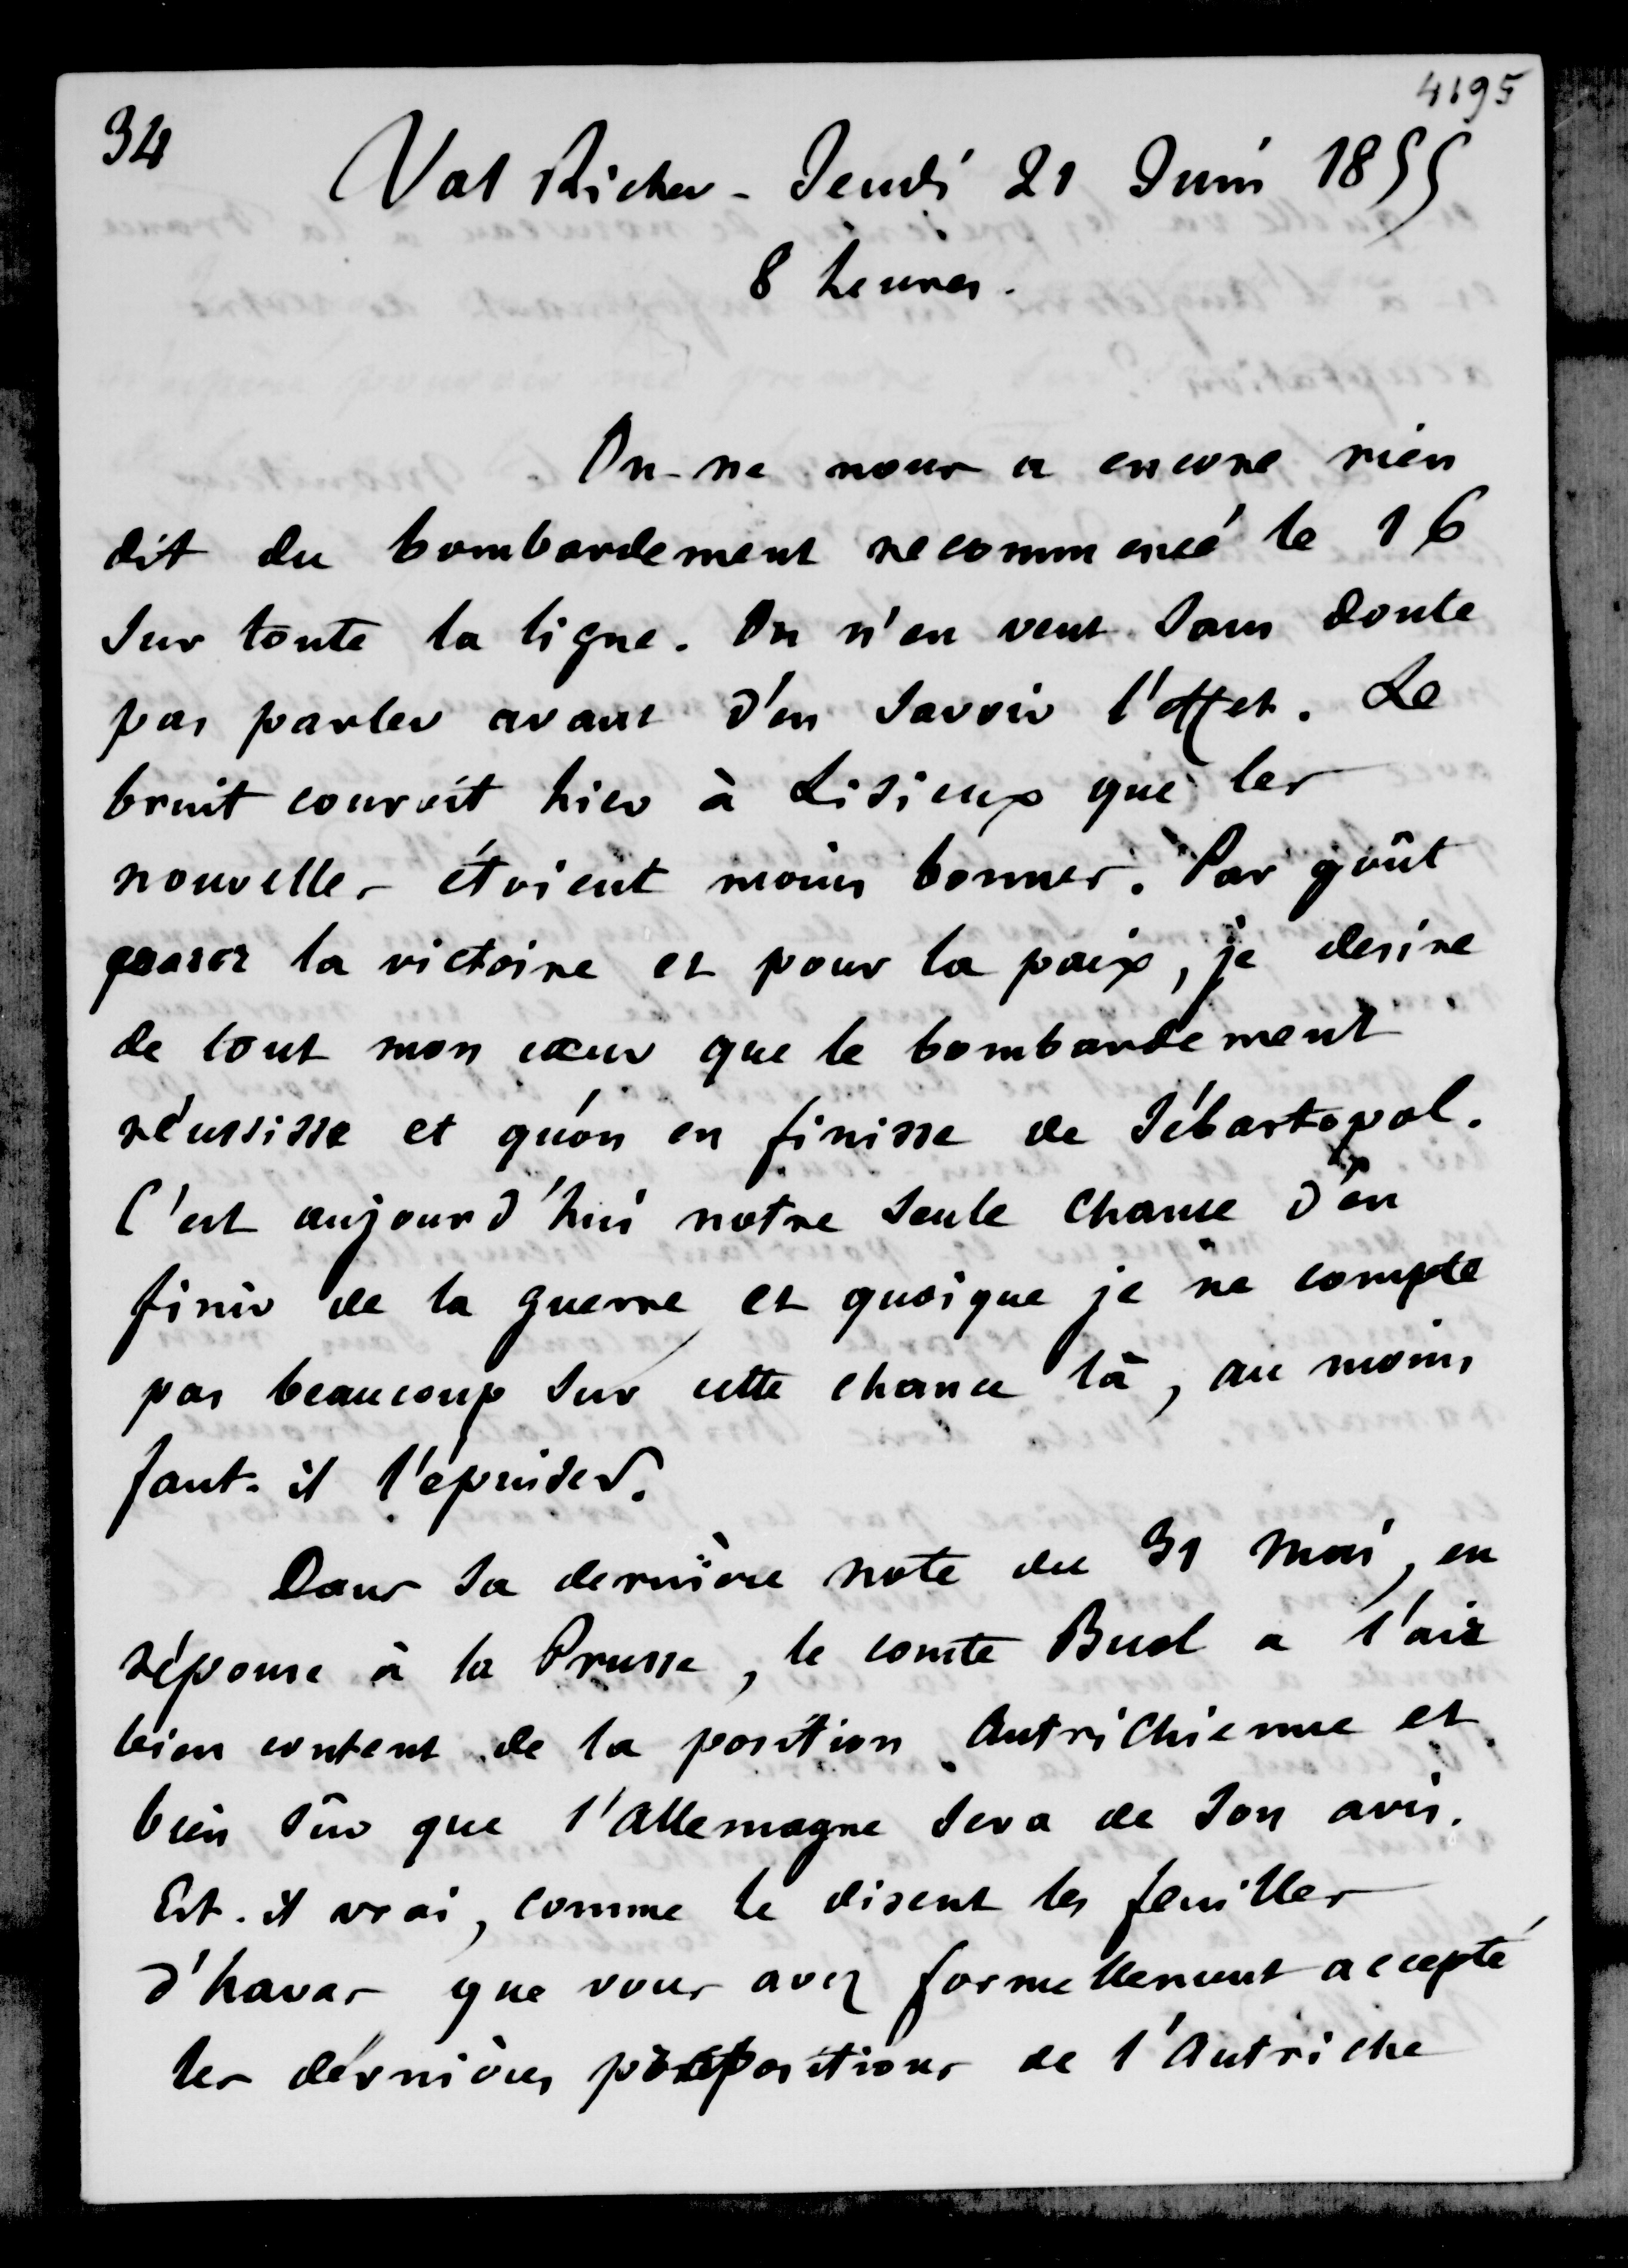 4195
34
Val Richer - Jeudi 21 Juin 1855
8 heures.
On ne nous a encore rien
dit du bombardement recommencé le 16
sur toute la ligne. On n'en veut sans doute
pas parler avant d'en savoir l'effet. Le
bruit couroit hier à Lisieux que les
nouvelles étoient moins bonnes. Par goût
pour la victoire et pour la paix, je desire
de tout mon cœur que le bombardement
réussisse et qu'on en finisse de Sébastopol.
C'est aujourd'hui notre seule chance d'en
finir de la guerre, et quoique je ne compte
pas beaucoup sur cette chance là, au moins
faut-il l'épuiser.
Dans sa dernière note du 31 mai, en
réponse à la Prusse, le comte Buol a l'air
bien content de la position Autrichienne et
bien sûr que l'Allemagne sera de son avis.
Est-il vrai, comme le disent les feuilles
d'havas que vous avez formellement accepté
les dernières propositions de l'Autriche